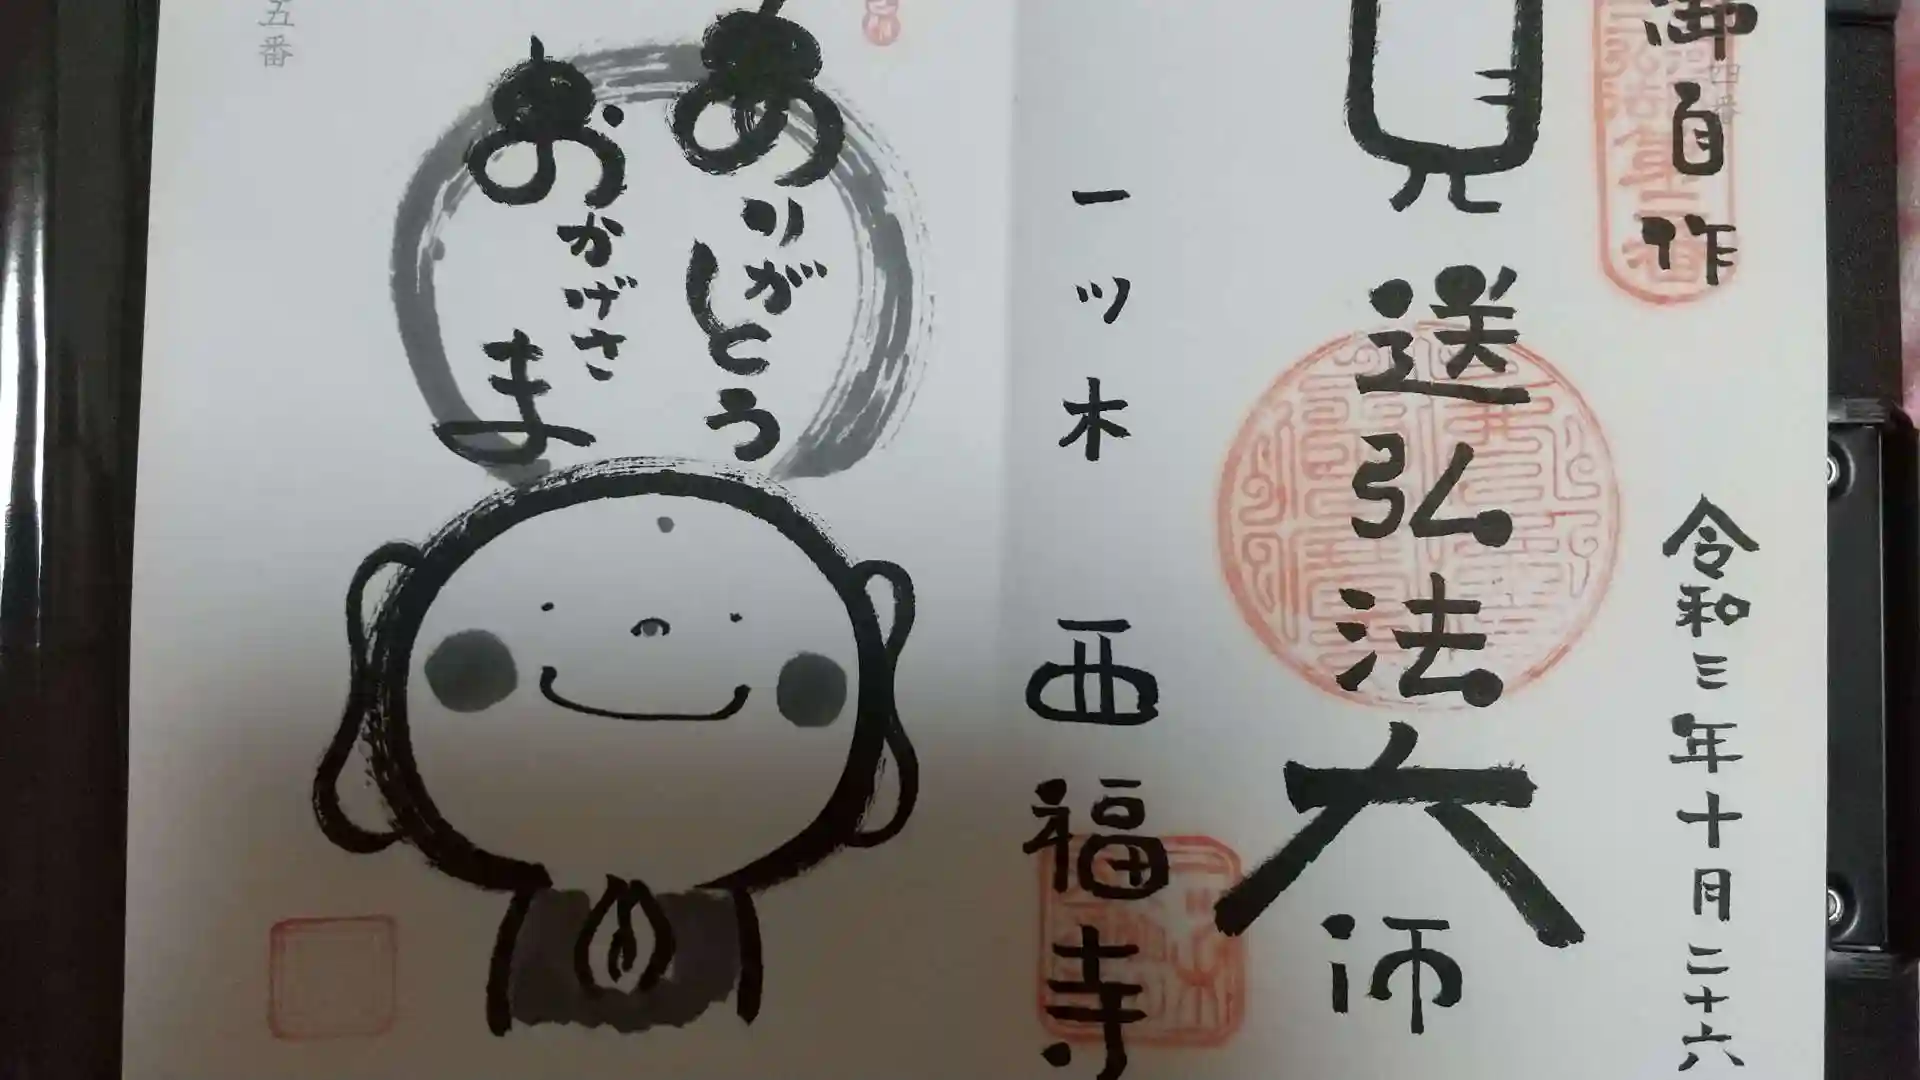 御自作
令和三年十月二十六
見送弘法大師
一ツ木 西福寺
ありがとう
おかげさま
五番